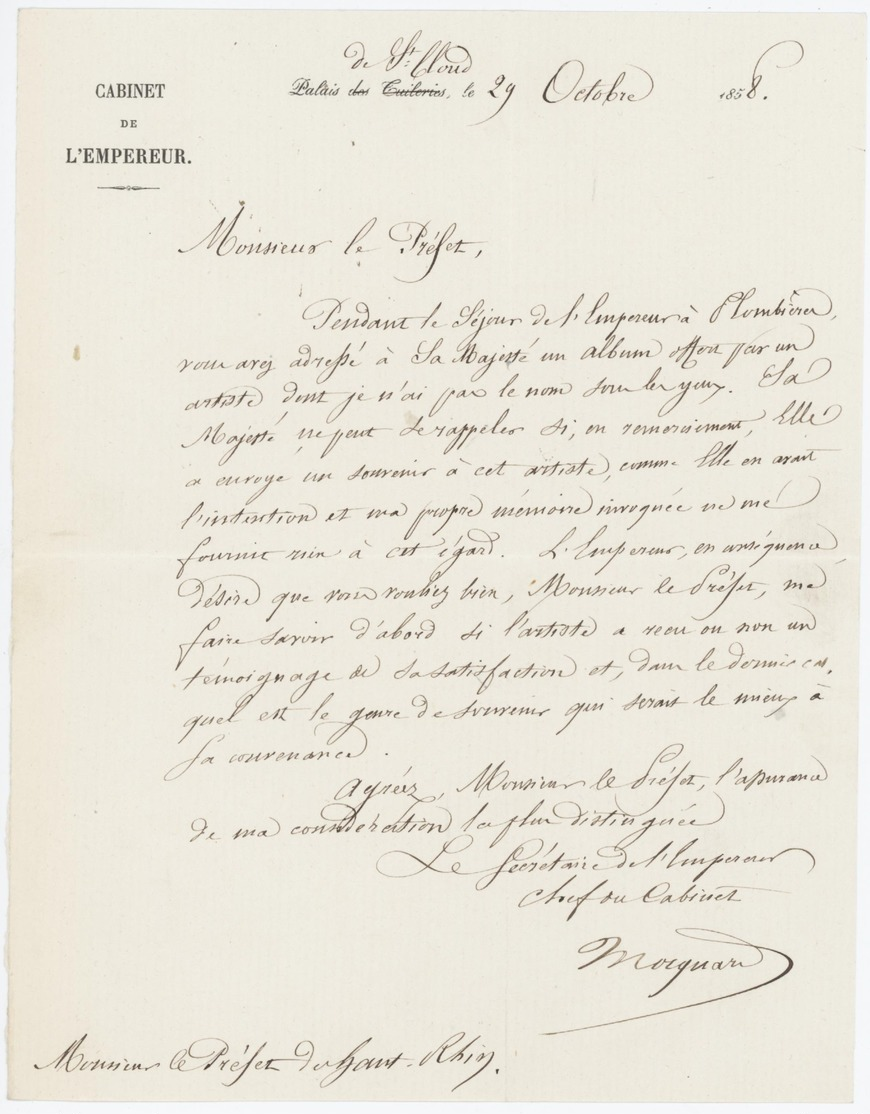 CABINET
DE
L'EMPEREUR.
de St. Cloud
Palais des Tuileries, le 29 Octobre 1858.
Monsieur le Préfet,
Pendant le Séjour de l'Empereur à Plombières,
vous avez adressé à Sa Majesté un album offert par un
artiste dont je n'ai pas le nom sous les yeux. Sa
Majesté ne peut se rappeler si, en remerciement, Elle
a envoyé un souvenir à cet artiste, comme Elle en avait
l'intention et ma propre mémoire invoquée ne me
fournit rien à cet égard. L'Empereur, en conséquence,
désire que vous vouliez bien, Monsieur le Préfet, me
faire savoir d'abord si l'artiste a recu ou non un
témoignage de sa satisfaction et, dans le dernier cas,
quel est le genre de souvenir qui serait le mieux à
sa convenance.
Agréez, Monsieur le Préfet, l'assurance
de ma considération la plus distinguée
Le Secrétaire de l'Empereur
chef du Cabinet
Mocquard
Monsieur le Préfet du haut-Rhin.